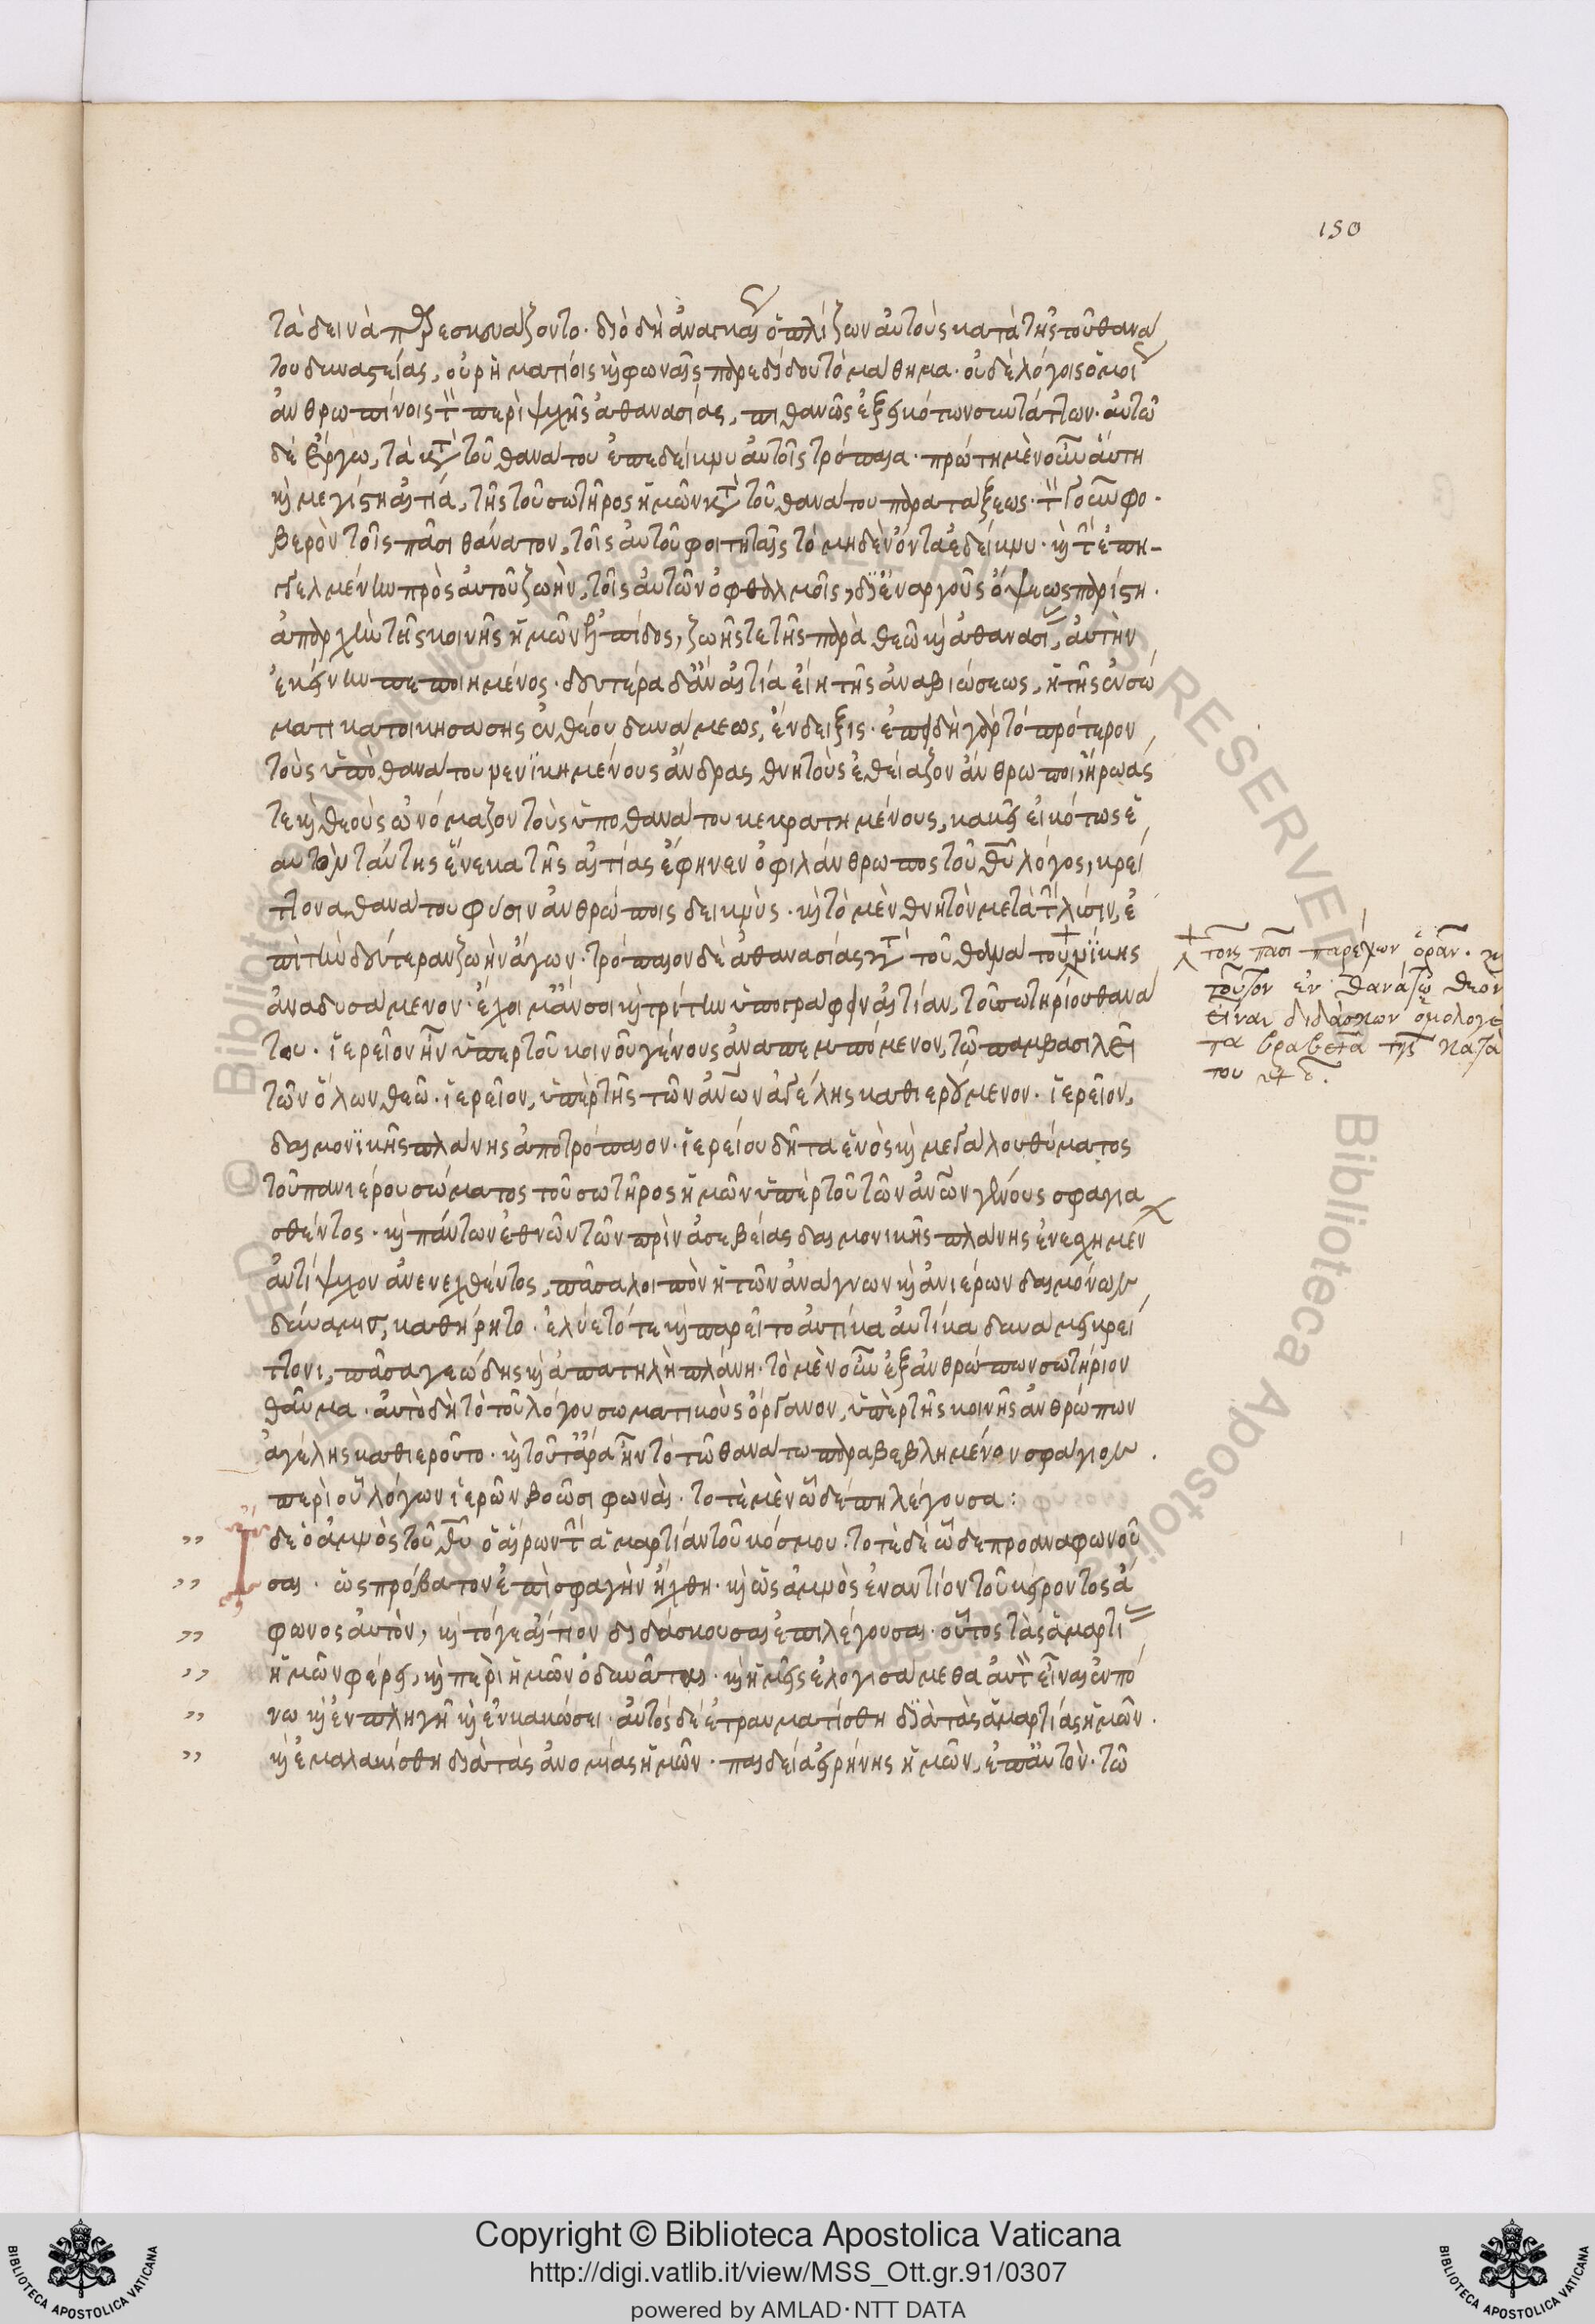 150
τὰ δεινὰ παρεσκευάζοντο. διὸ δὴ ἀναγκαίως ὁπλίζων αὐτοὺς κατὰ τῆς τοῦ θανά
του δυναστείας, οὐ ῥηματίοις καὶ φωναῖς παρεδίδου τὸ μάθημα. οὐδὲ λόγοις ὁμοί
ἀνθρωπίνοις τὸν περὶ ψυχῆς ἀθανασίας, πιθανῶς ἐξ εἰκότων συντάττων. αὐτῶ
δὲ ἔργω, τὰ κατὰ τοῦ θανάτου ἐπεδείκνυ αὐτοῖς τρόπαια. πρώτη μὲν οὖν αὕτη
καὶ μεγίστη αἰτία, τῆς τοῦ σωτῆρος ἡμῶν κατὰ τοῦ θανάτου παρατάξεως. τὸν γοῦν φο.
βερὸν τοῖς πᾶσι θάνατον, τοῖς αὐτοῦ φοιτηταῖς τὸ μηδὲν ὄντα ἐδείκνυ. καὶ τὴν ἐπη-
γελμένην πρὸς αὐτοῦ ζωὴν, τοῖς αὐτῶν ὀφθαλμοῖς, δι ἐναργοῦς ὄψεως παρίστη.
ἀπαρχὴν τῆς κοινῆς ἡμῶν ἐλπίδος, ζωῆς τε τῆς παρὰ θεῶ καὶ ἀθανασίας, αὐτὴν
ἐκείνην πεποιημένος. δευτέρα δ' ἂν αἰτία εἴη τῆς ἀναβιώσεως, ἡ τῆς ἐν σώ
ματι κατοικησάσης ἐνθέου δυνάμεως, ἔνδειξις. ἐπειδὴ γὰρ τὸ πρότερον
τοὺς ὑπὸ θανάτου νενικημένους ἄνδρας θνητοὺς ἐθείαζον ἄνθρωποι, ἥρωάς
τε καὶ θεοὺς ὠνόμαζον τοὺς ὑπὸ θανάτου κεκρατημένους, κακεῖ εἰκότως ἑ
αυτὸν ταύτης ἕνεκα τῆς αἰτίας ἔφηνεν ὁ φιλάνθρωπος τοῦ θυ λόγος, κρεί
ττονα θανάτου φύσιν ἀνθρώποις δεικνὺς. καὶ τὸ μὲν θνητὸν μετὰ τὴν λύσιν, ἐ
πὶ τὴν δευτέραν ζωὴν ἄγων. τρόπαιον δὲ ἀθανασίας κατὰ τοῦ θανάτου νίκης
ἀναδυσάμενον. ἔχοι μ' ἄν σοι καὶ τρίτην ὑπογράφειν αἰτίαν, τοῦ σωτηρίου θανά
του. ἱερεῖον ἦν ὑπὲρ τοῦ κοινοῦ γένους ἀναπεμπόμενον, τῶ παμβασιλεῖ
τῶν ὅλων θεῶ. ἱερεῖον, ὑπὲρ τῆς τῶν ἀνων ἀγέλης καθιερούμενον. ἱερεῖον,
δαιμονϊκῆς πλάνης ἀποτρόπαιον. ἱερείου δῆτα ἑνὸς καὶ μεγάλου θύματος
τοῦ πανιέρου σώματος τοῦ σωτῆρος ἡμῶν ὑπὲρ τοῦ τῶν ἀνων γένους σφαγια
σθέντος. καὶ πάντων ἐθνῶν τῶν πρὶν ἀσεβείας δαιμονικῆς πλάνης ἐνεχημέν
ἀντίψυχον ἀνενεχθέντος, πᾶσα λοιπὸν ἡ τῶν ἀνάγνων καὶ ἀνιέρων δαιμόνων
δύναμις, καθήρητο. ἐλύετό τε καὶ παρεῖτο ἀντίκα αὐτίκα δυνάμει κρεί
ττονι, πᾶσα γεώδης καὶ ἀπατηλὴ πλάνη. τὸ μὲν οὖν ἐξ ἀνθρώπων σωτήριον
θαῦμα. αὐτὸ δὴ τὸ τοῦ λόγου σωματικοὺς ὄργανον, ὑπὲρ τῆς κοινῆς ἀνθρώπων
ἀγέλης καθιεροῦτο. καὶ τοῦτ' ἄρα ἦν τὸ τῶ θανάτω παραβεβλημένον σφάγιον.
περὶ οὗ λόγων ἱερῶν βοῶσι φωναὶ. τοτὲ μὲν ὧδέ πη λέγουσα:
Ἴδε ὁ ἀμνὸς τοῦ θυ ὁ αἴρων τὴν ἁμαρτίαν τοῦ κόσμου. τοτὲ δὲ ὧδε προαναφωνοῦ
σαι. ὡς πρόβατον ἐπὶ σφαγὴν ἤχθη. καὶ ὡς ἀμνὸς ἐναντίον τοῦ κείροντος ἄ
φωνος αὐτὸν, καὶ τό γε αἴτιον διδάσκουσαι ἐπιλέγουσαι. οὗτος τὰς ἁμαρτί
ἡμῶν φέρει, καὶ περὶ ἡμῶν ὀδυνᾶται. καὶ ἡμεῖς ἐλογισάμεθα αὐτὸν εἶναι ἐν πό
νω καὶ ἐν πληγῆ καὶ ἐν κακώσει. αὐτός δὲ ἐτραυματίσθη διὰ τὰς ἁμαρτίας ἡμῶν.
καὶ ἐμαλακίσθη διὰ τὰς ἀνομίας ἡμῶν. παιδεία εἰρήνης ἡμῶν, ἐπ' αὐτὸν. τῶ
τοῖς πᾶσι παρέχων ὁρᾶν. καὶ
τοῦτον ἐν θανάτῳ θεὸν
εἶναι διδάσκων ὁμολογε
τὰ βραβεῖα τῆς κατὰ
του
Copyright © Biblioteca Apostolica Vaticana
http://digi.vatlib.it/view/MSS_Ott.gr.91/0307
powered by AMLAD·NTT DATA